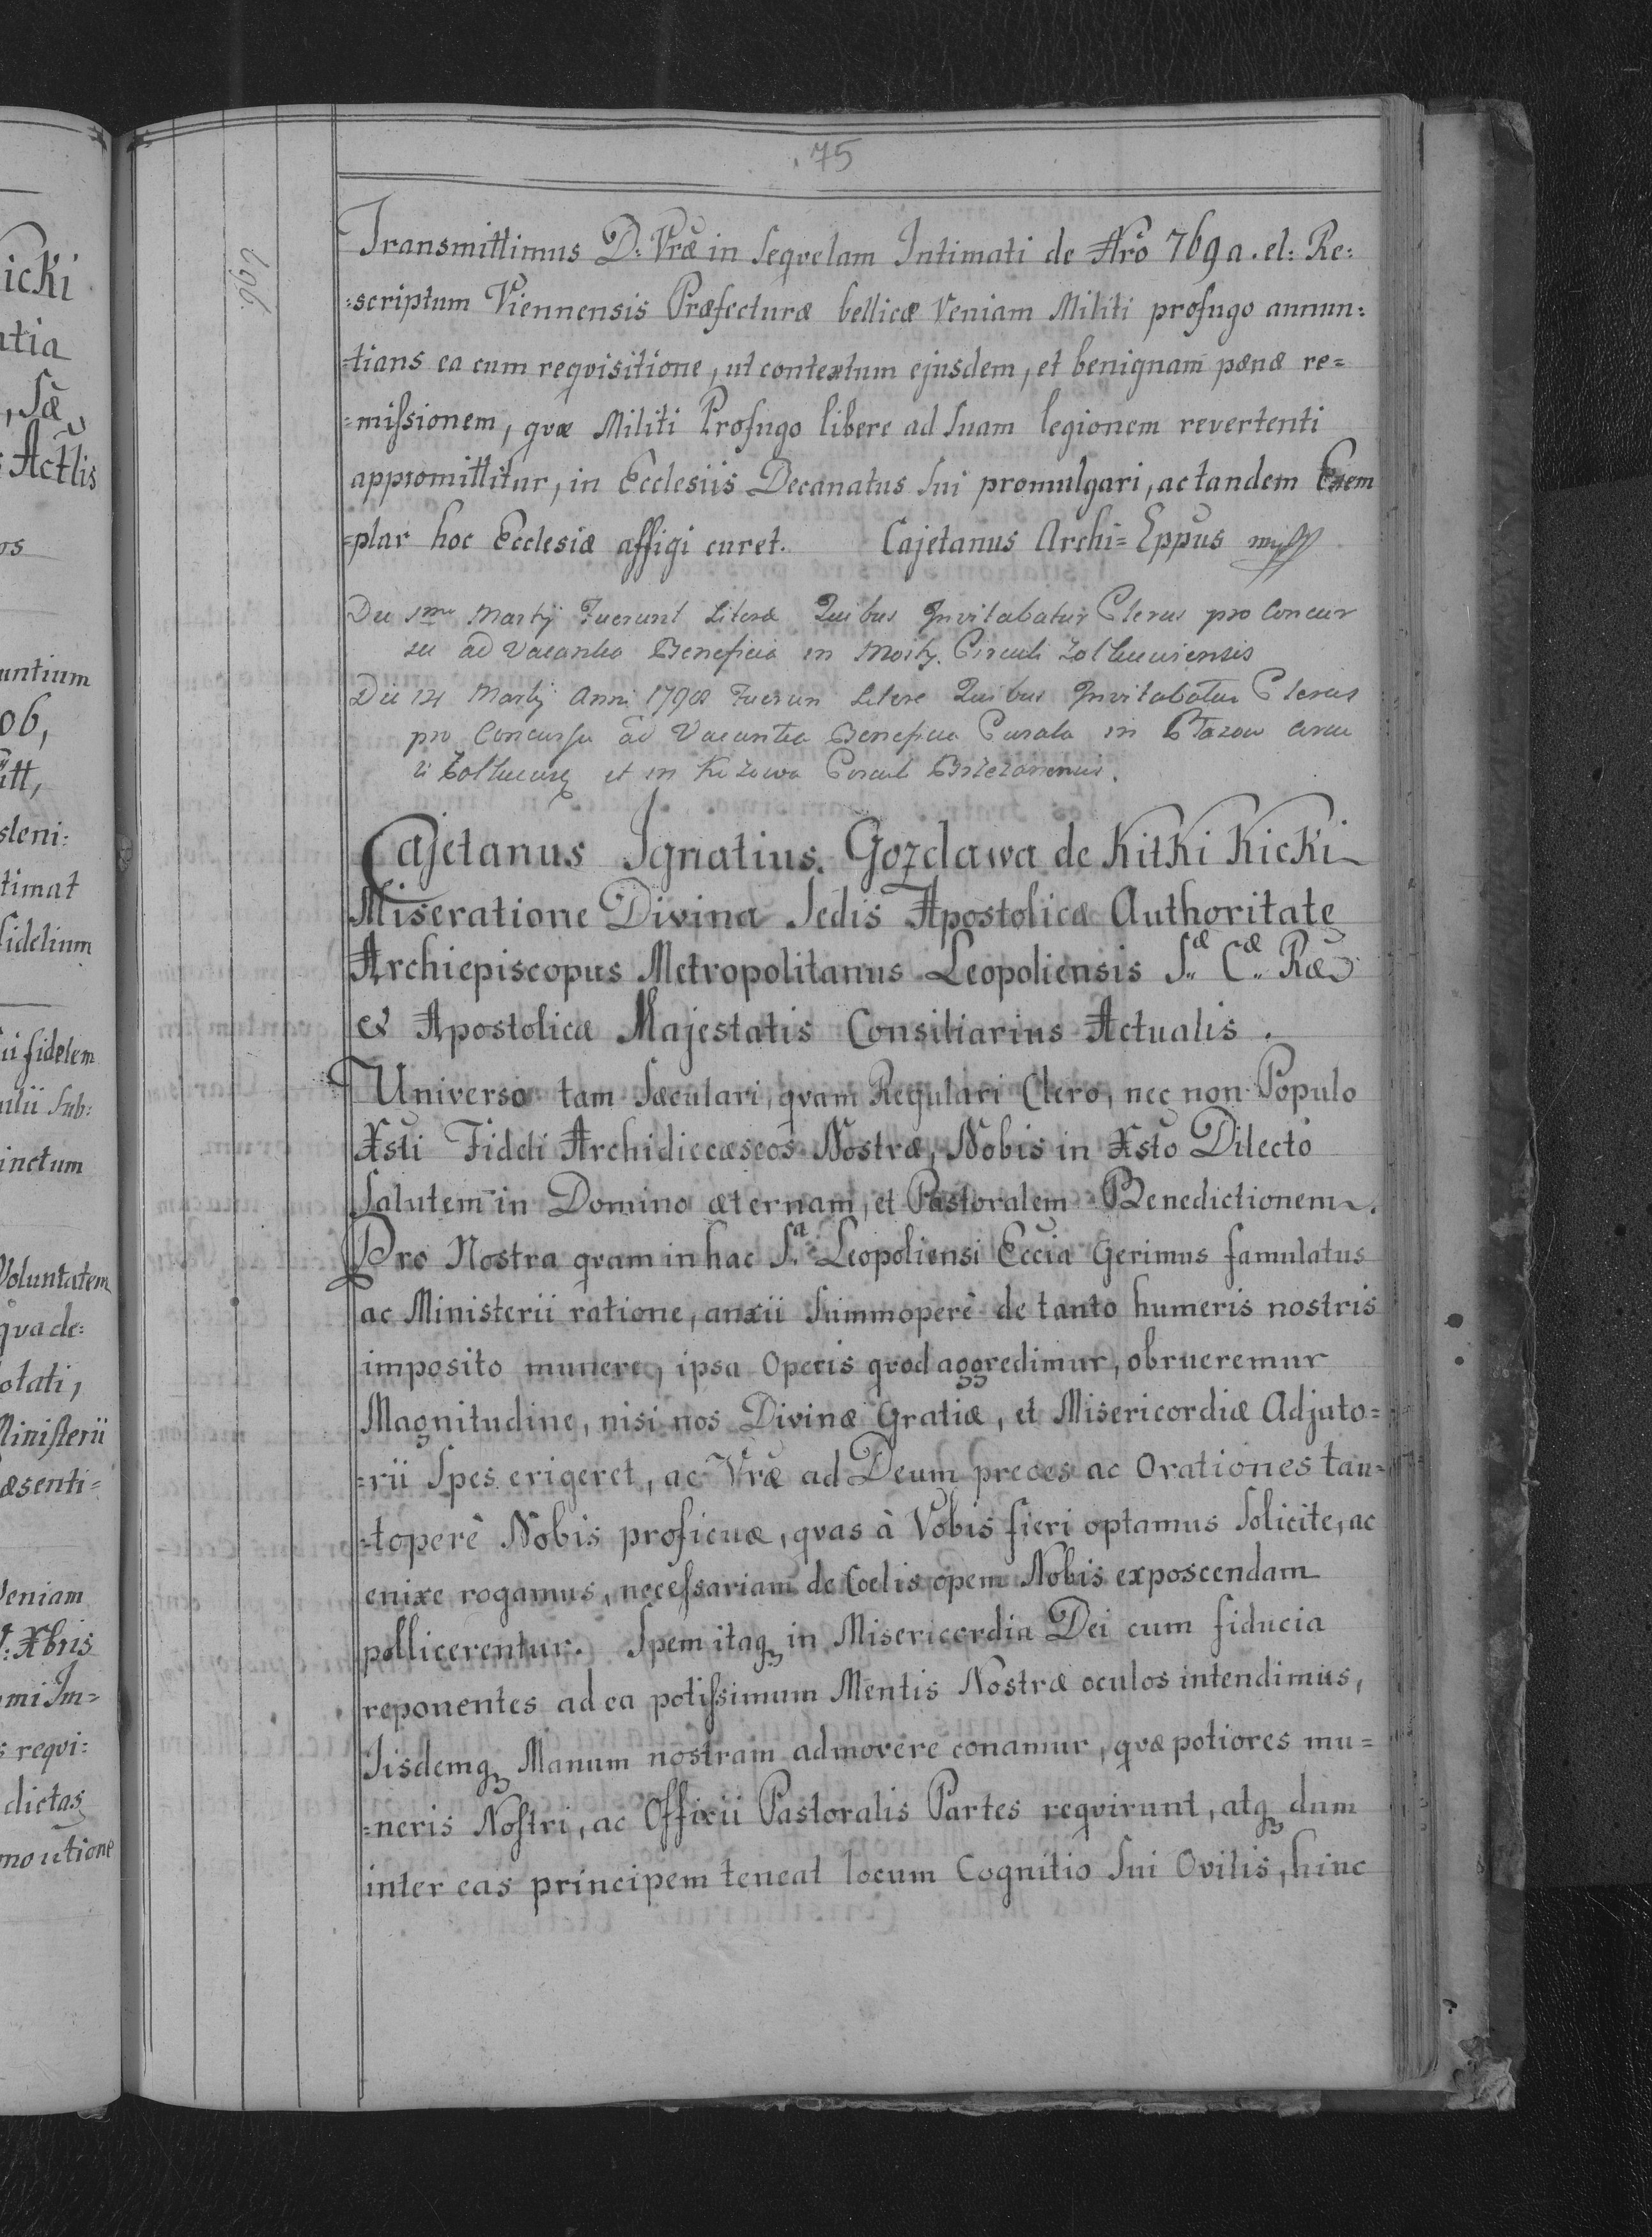 75
Transmittimus D: Vræ in sequelam Intimati de Nro 769 a. el: Re:
=scriptum Viennensis Præfecturæ bellicæ Veniam Militi profugo annun:
=tians ea cum requisitione, ut contextum ejusdem, et benignam pænæ re=
=missionem, quæ Militi Profugo libere ad Suam legionem revertenti
appromittitur, in Ecclesiis Decanatus Sui promulgari, ac tandem Exem
=plar hoc Ecclesiæ affigi curet. Cajetanus Archi=Eppus mp
Die 1ma Martij Fuerunt Literæ Quibus Invitabatur Clerus pro Concur
su ad Vacantia Beneficia in Mosty. Circuli Zolkieviensis
Die 14 Martij Anni 1798 Fuerun Litere Quibus Invitabatur Clerus
pro Concursu ad Vacantia Beneficia Curata in circu
li et in Circuli Brzezanensis.
Cajetanus Ignatius. Gozdawa de Kitki Kicki
Miseratione Divina Sedis Apostolicæ Authoritate
Archiepiscopus Metropolitanus Leopoliensis S.æ C.æ Ræ
& Apostolicæ Majestatis Consiliarius Actualis.
Universo tam Sæculari, quam Regulari Clero, nec non Populo
Xsti Fideli Archidiæcæseos Nostræ, Nobis in Xsto Dilecto
Salutem in Domino æternam, et Pastoralem Benedictionem.
Pro Nostra quam in hac S.a Leopoliensi Eccia Gerimus famulatus
ac Ministerii ratione, anxii Summoperè de tanto humeris nostris
imposito munere, ipsa Operis quod aggredimur, obrueremur
Magnitudine, nisi nos Divinæ Gratiæ, et Misericordiæ Adjuto=
=rii Spes erigeret, ac Vræ ad Deum preces ac Orationes tan=
=toperè Nobis proficuæ, quas à Vobis fieri optamus Solicite, ac
enixe rogamus, necessariam de Coelis opem Nobis exposcendam
pollicerentur. Spem itaq in Misericordia Dei cum fiducia
reponentes ad ea potissimum Mentis Nostræ oculos intendimus,
Iisdemq Manum nostram admovere conamur, quæ potiores mu=
=neris Nostri, ac Officii Pastoralis Partes requirunt, atq dum
inter eas principem teneat locum Cognitio Sui Ovilis, hinc